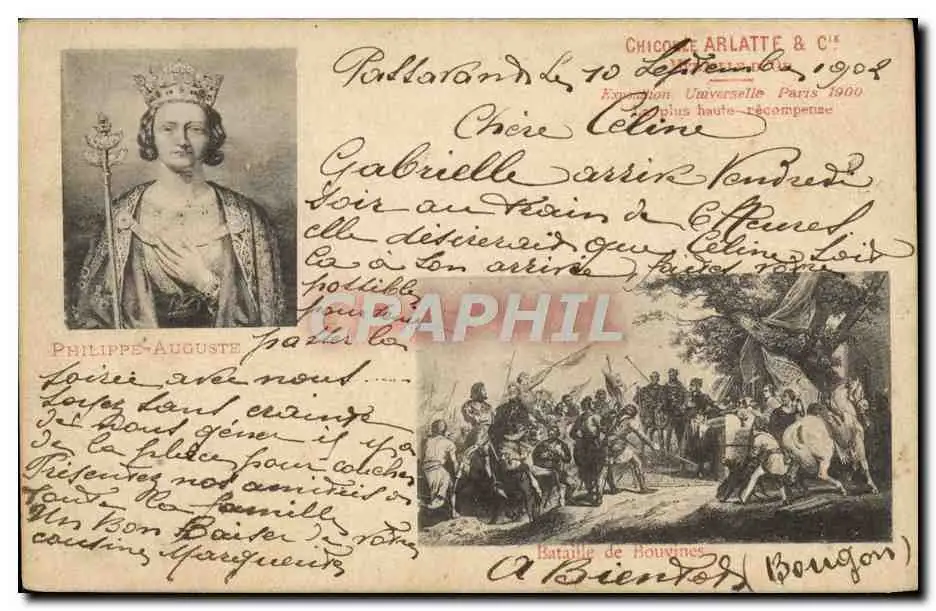 CHICORÉE ARLATTE & Cie
Exposition Universelle Paris 1900
La plus haute récompense
Le 10 Septembre 1902
Chère Céline
Gabrielle arrive Vendredi
soir au train de 6 Heures
elle désirerait que Céline soit
là à son arrivée, faites votre
possible
pour
passer la
soirée avec nous.....
soyez sans crainte
de nous gêner il y a
de la place pour coucher
Présentez nos amitiés à
toute la famille
Un Bon Baiser de votre
cousine Marguerite
PHILIPPE-AUGUSTE
CPAPHIL
Bataille de Bouvines
A Bientot (Bougon)